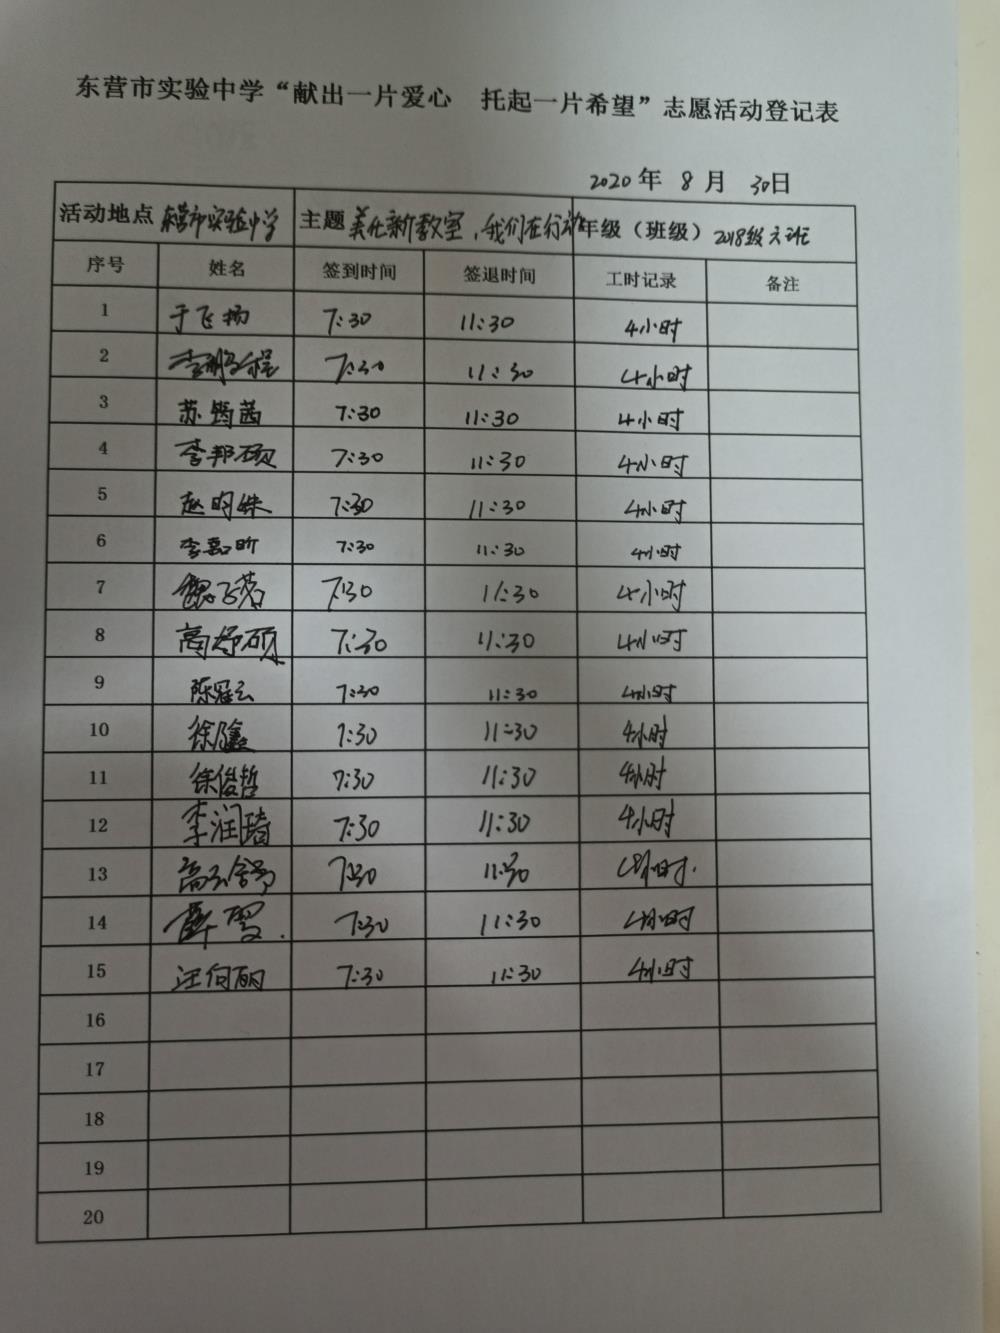 东营市实验中学“献出一片爱心 托起一片希望”志愿活动登记表
2020年 8月 30日
活动地点 东营市实验中学 主题 美化新教室,我们在行动 年级（班级）2018级六班
序号 姓名 签到时间 签退时间 工时记录 备注
1 于飞扬 7:30 11:30 4小时
2 李鹏程 7:30 11:30 4小时
3 苏筠茜 7:30 11:30 4小时
4 李邦硕 7:30 11:30 4小时
5 赵明姝 7:30 11:30 4小时
6 李嘉昕 7:30 11:30 4小时
7 魏飞若 7:30 11:30 4小时
8 高妤硕 7:30 11:30 4小时
9 陈冠云 7:30 11:30 4小时
10 徐 7:30 11:30 4小时
11 徐俊哲 7:30 11:30 4小时
12 李润琦 7:30 11:30 4小时
13 高云舒 7:30 11:30 4小时.
14 7:30 11:30 4小时
15 汪向丽 7:30 11:30 4小时
16
17
18
19
20